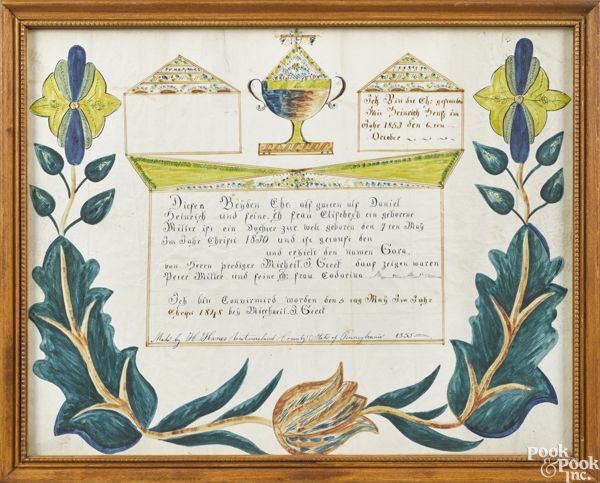 Ich Bin die Eh: gefunden
Mit Heinrich Heuß im
Jahr 1853 den 6.ten
October
Diesen Beyden Ehe. alß gatten alß Daniel
Heinrich und seine eh frau Elisebeth ein geborene
Miller ist ein Dochter zur welt geboren den 7 ten May
Im Jahr Christi 1830 und ist getauft den
und erhielt den namen Sara
von Herrn prediger Micheil. J. Gieet dauf zeigen waren
Peter Miller und seine eh: frau Cadarina
Ich bin Convirmird worden den 5 tag May Im Jahr
Christi 1848 bey Michaeil. J. Gieet
Made by H. County State of Pennsylvania 1855
Pook
& Pook
Inc.